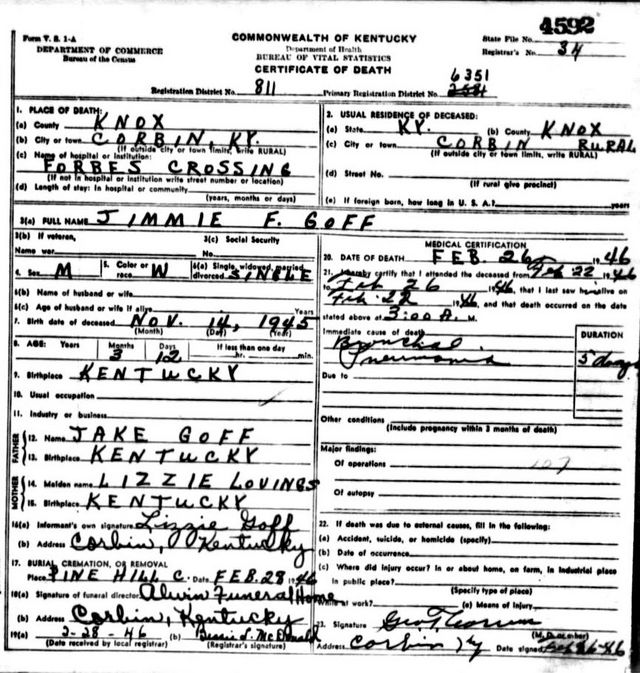 4592
Form V. S. 1-A
DEPARTMENT OF COMMERCE
Bureau of the Census
COMMONWEALTH OF KENTUCKY
Department of Health
BUREAU OF VITAL STATISTICS
CERTIFICATE OF DEATH
State File No.
Registrar's No. 34
Registration District No. 811
6351
Primary Registration District No.
1. PLACE OF DEATH:
(a) County KNOX
(b) City or town CORBIN, KY.
(If outside city or town limits, write RURAL)
(c) Name of hospital or institution:
FORBES CROSSING
(If not in hospital or institution write street number or location)
(d) Length of stay: In hospital or community
(years, months or days)
2. USUAL RESIDENCE OF DECEASED:
(a) State KY. (b) County KNOX
(c) City or town CORBIN RURAL
(If outside city or town limits, write RURAL)
(d) Street No.
(If rural give precinct)
(e) If foreign born, how long in U. S. A.? years
3(a) FULL NAME JIMMIE F. GOFF
3(b) If veteran, Name war
3(c) Social Security No.
4. Sex M
5. Color or race W
6(a) Single, widowed, married, divorced SINGLE
6(b) Name of husband or wife
6(c) Age of husband or wife if alive Years
7. Birth date of deceased NOV. 14, 1945
(Month) (Day) (Year)
8. AGE: Years Months Days If less than one day
3 12 hr. min.
9. Birthplace KENTUCKY
10. Usual occupation
11. Industry or business
FATHER
12. Name JAKE GOFF
13. Birthplace KENTUCKY
MOTHER
14. Maiden name LIZZIE LOVINGS
15. Birthplace KENTUCKY
16(a) Informant's own signature Lizzie Goff
(b) Address Corbin, Kentucky
17. BURIAL, CREMATION, OR REMOVAL
Place PINE HILL C. Date FEB. 28 1946
18(a) Signature of funeral director Alvin Funeral Home
(b) Address Corbin, Kentucky
19(a) 2-28-46 (b) Bessie L. McDonald
(Date received by local registrar) (Registrar's signature)
MEDICAL CERTIFICATION
20. DATE OF DEATH FEB. 26 1946
21. I hereby certify that I attended the deceased from Feb 22 1946
to Feb 26 1946, that I last saw him alive on
Feb 22 1946, and that death occurred on the date
stated above at 3:00 A. M.
Immediate cause of death DURATION
Bronchial
Pneumonia 5 days
Due to
Other conditions
(Include pregnancy within 3 months of death)
Major findings:
Of operations 107
Of autopsy
22. If death was due to external causes, fill in the following:
(a) Accident, suicide, or homicide (specify)
(b) Date of occurrence
(c) Where did injury occur? In or about home, on farm, in industrial place
in public place?
(Specify type of place)
While at work? (e) Means of injury
23. Signature Geo
Address Corbin Ky Date signed Feb 26-46